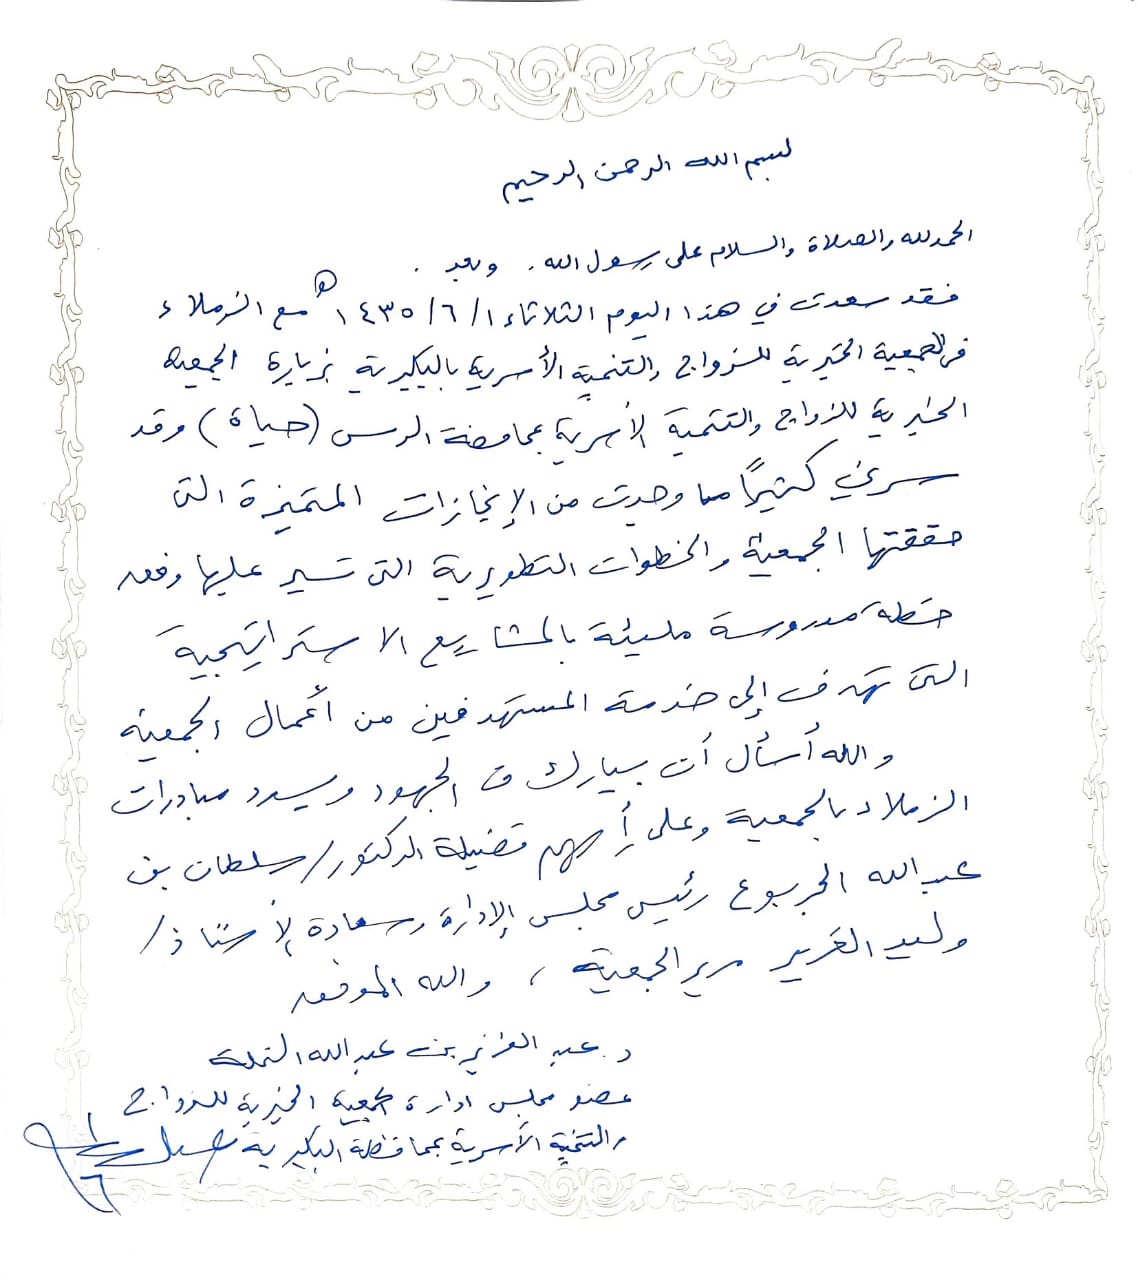 بسم الله الرحمن الرحيم
الحمدلله والصلاة والسلام على رسول الله . وبعد .
فقد سعدت في هذا اليوم الثلاثاء ١/٦/١٤٣٥هـ مع الزملاء
في الجمعية الخيرية للزواج والتنمية الأسرية بالبكيرية بزيارة الجمعية
الخيرية للزواج والتنمية الأسرية بمحافظة الرس (حياة) وقد
سرني كثيراً ما وجدت من الإنجازات المتميزة التي
حققتها الجمعية والخطوات التطويرية التي تسير عليها وفق
خطة مدروسة مليئة بالمشاريع الاستراتيجية
التي تهدف إلى خدمة المستهدفين من أعمال الجمعية
والله أسأل أن يبارك في الجهود ويسدد مبادرات
الزملاء بالجمعية وعلى رأسهم فضيلة الدكتور/ سلطان بن
عبدالله الجربوع رئيس مجلس الإدارة وسعادة الأستاذ/
وليد الغرير مدير الجمعية ، والله الموفق
د. عبدالعزيز بن عبدالله النملة
عضو مجلس ادارة الجمعية الخيرية للزواج
والتنمية الأسرية بمحافظة البكيرية